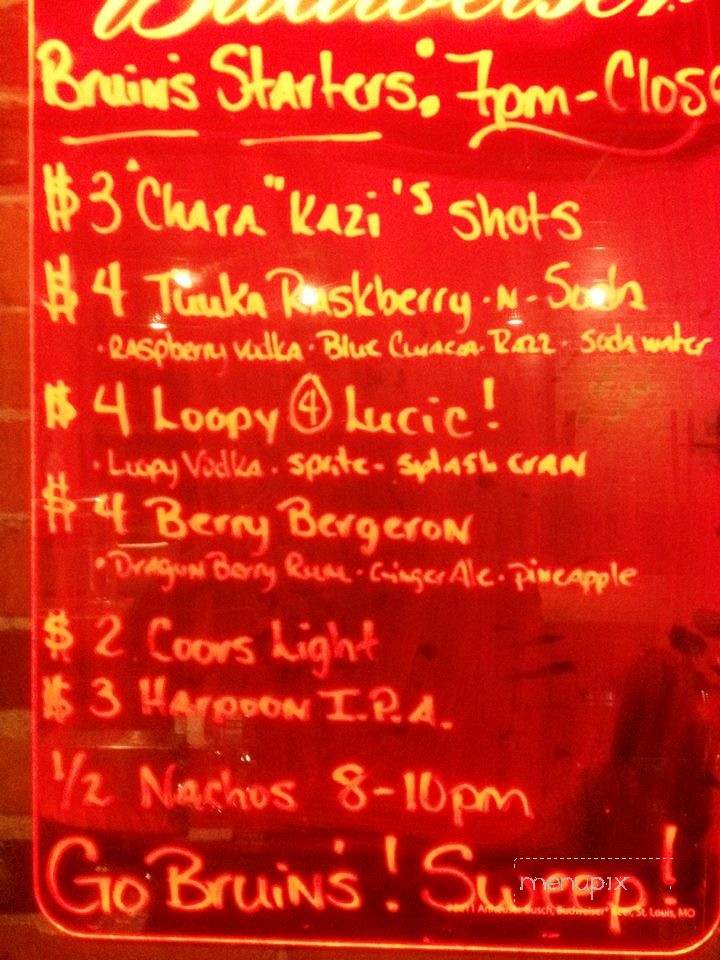 Budweiser
Bruin's Starters: 7pm - Close
$3 "Chara" "Kazi's shots
$4 Tuuka Raskberry - N - Soda
· Raspberry Vodka · Blue Curacao · Razz · Soda water
$4 Loopy 4 Lucic!
· Loopy Vodka · sprite - splash cran
$4 Berry Bergeron
· Dragon Berry Rum · Ginger Ale · pineapple
$2 Coors Light
$3 Harpoon I.P.A.
1/2 Nachos 8-10pm
Go Bruin's! Sweep!
menupix
©2011 Anheuser-Busch, Budweiser® Beer, St. Louis, MO